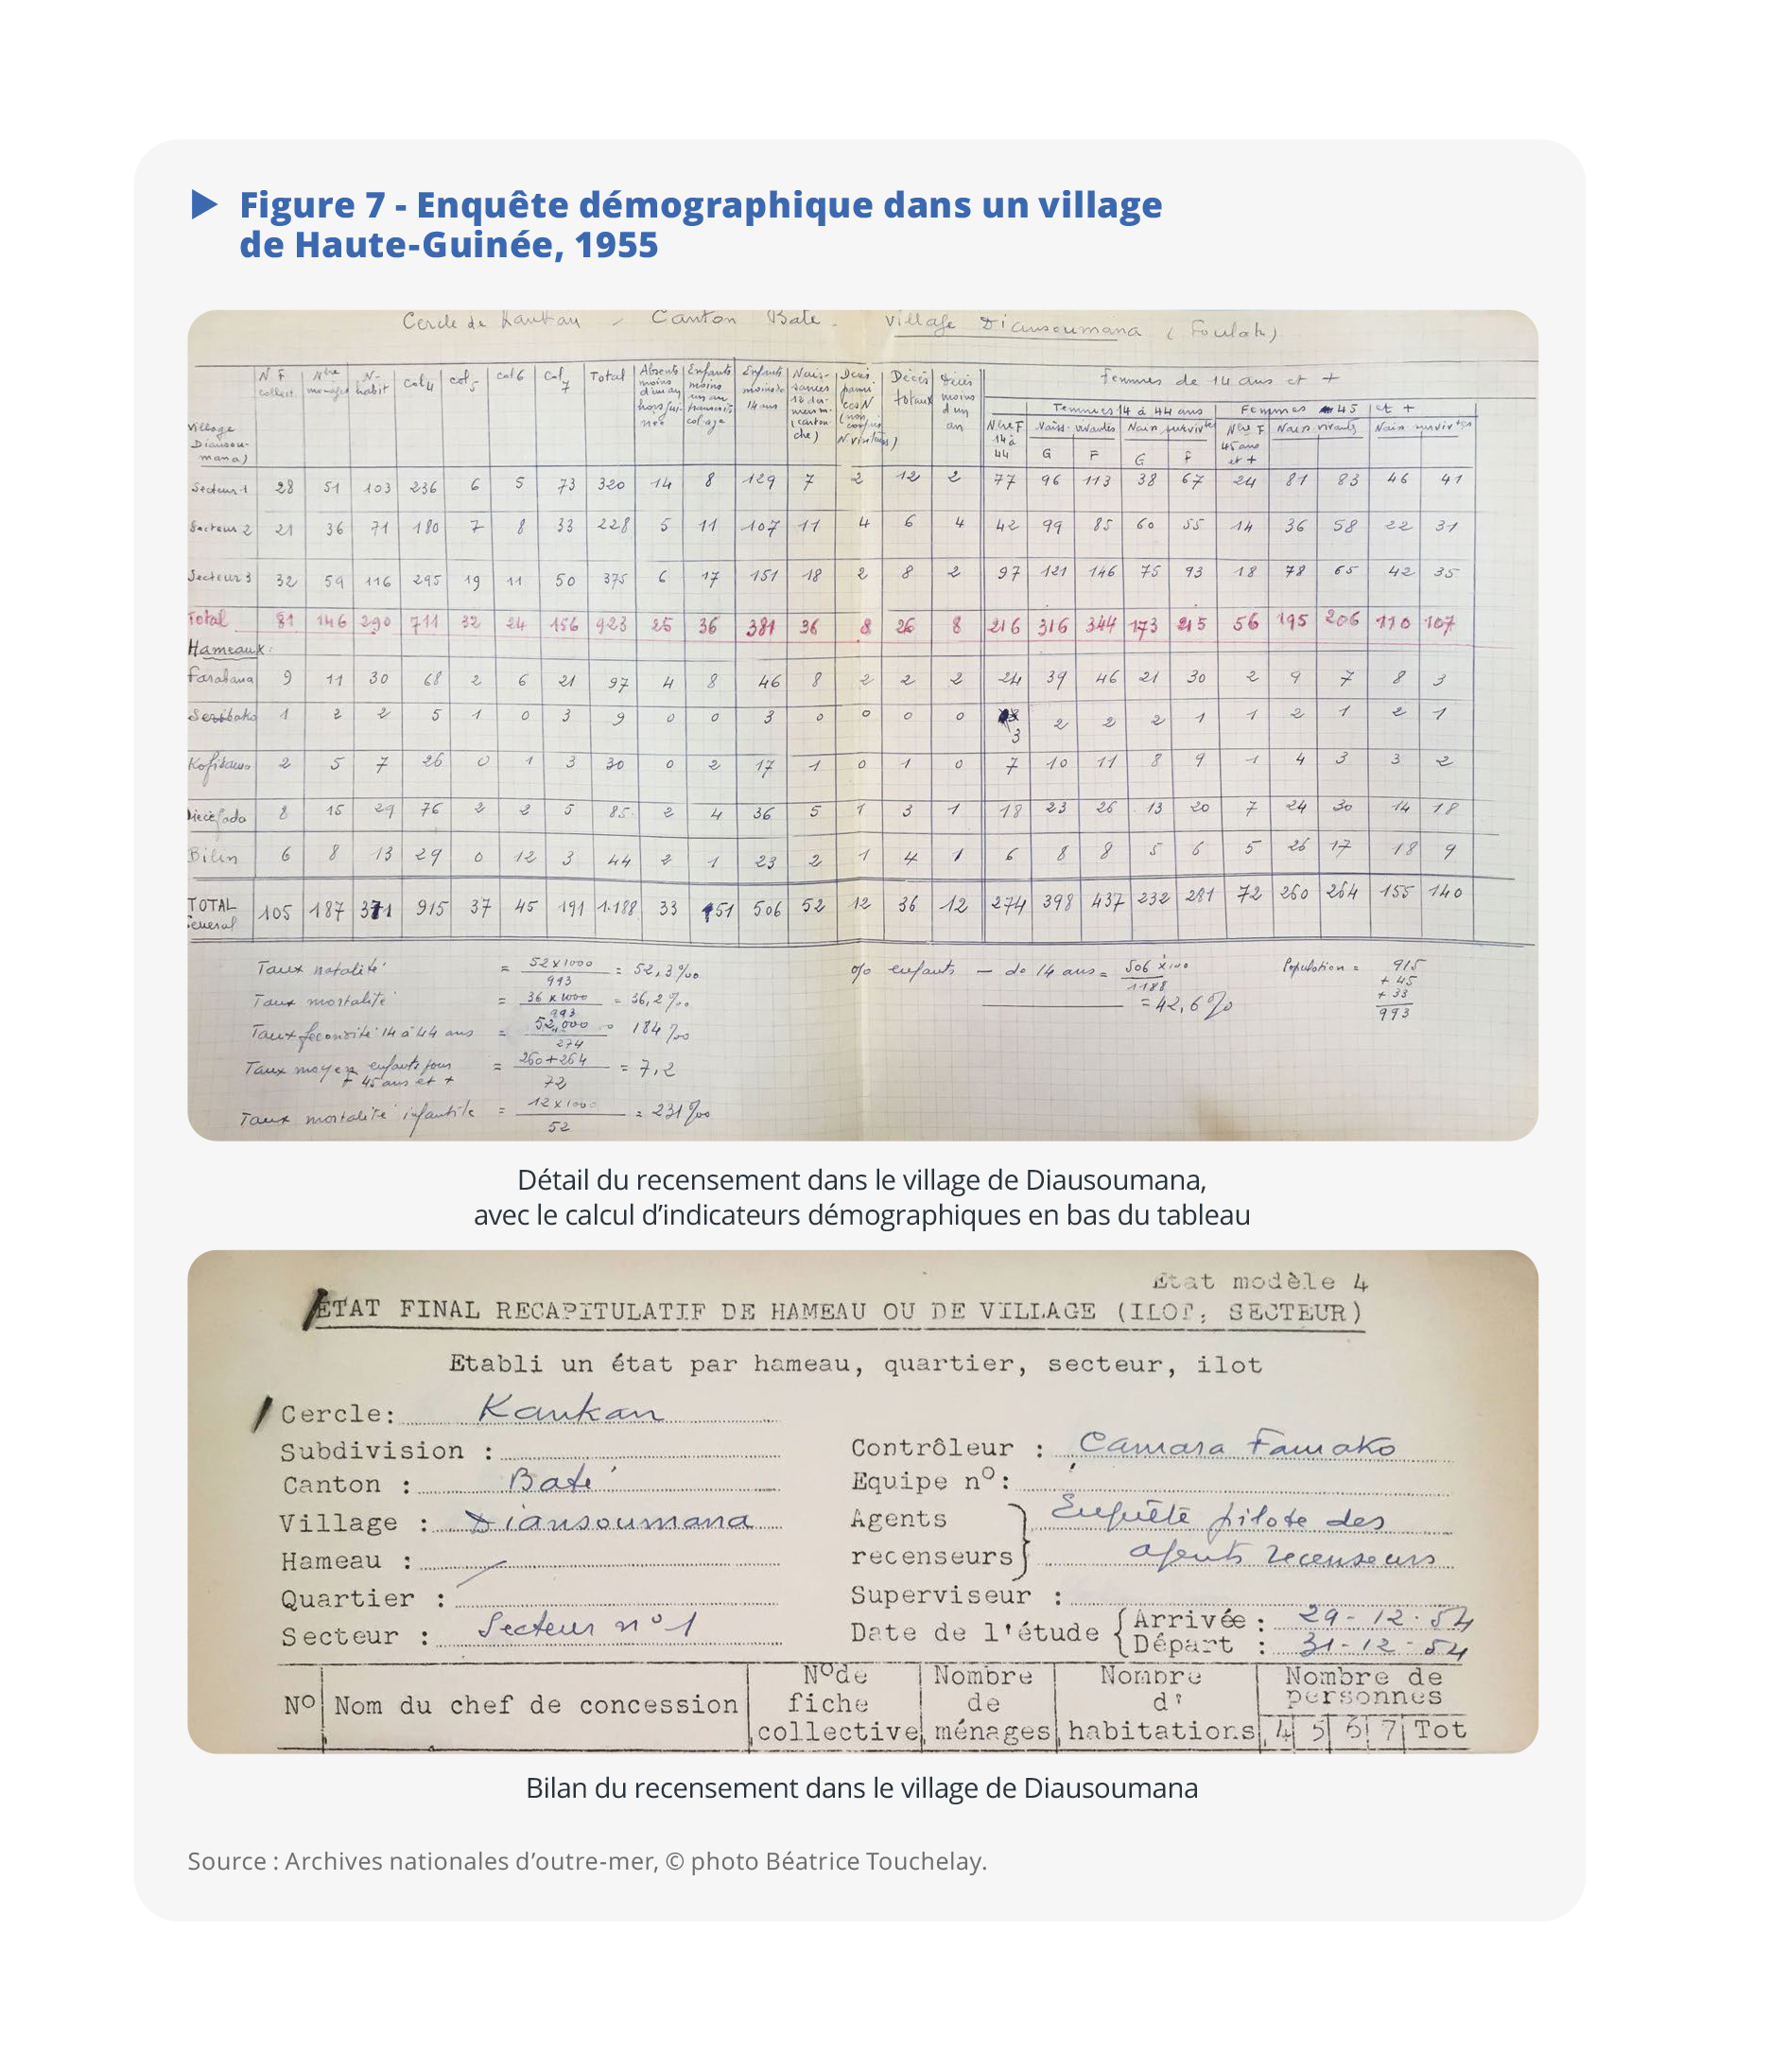 Figure 7 - Enquête démographique dans un village
de Haute-Guinée, 1955
Cercle de Kankan - Canton Bate - Village Diansoumana (Foulah)
N F collect. Nbre ménages N- habit Col4 col5 col6 Col 7 Total Absents moins d'un an hors Guinée Enfants moins un an Enfants moins de 14 ans Nais-sances 12 der- Décès parmi ces N Décès totaux Décès moins d'un an Femmes de 14 ans et +
Femmes 14 à 44 ans Femmes 45 et +
Nbre F 14 à 44 Naiss. vivantes Nais. Nbre F 45 ans et + Nais. vivants Nais.
G F G F
Village
Diansou-
mana)
Secteur 1 28 51 103 236 6 5 73 320 14 8 129 7 2 12 2 77 96 113 38 67 24 81 83 46 41
Secteur 2 21 36 71 180 7 8 33 228 5 11 107 11 4 6 4 42 99 85 60 55 14 36 58 22 31
Secteur 3 32 59 116 295 19 11 50 375 6 17 151 18 2 8 2 97 121 146 75 93 18 78 65 42 35
Total 81 146 290 711 32 24 156 923 25 36 381 36 8 26 8 216 316 344 173 215 56 195 206 110 107
Hameaux:
Farabana 9 11 30 68 2 6 21 97 4 8 46 8 2 2 2 24 39 46 21 30 2 9 7 8 3
1 2 2 5 1 0 3 9 0 0 3 0 0 0 0 3 2 2 2 1 1 2 1 2 1
2 5 7 26 0 1 3 30 0 2 17 1 0 1 0 7 10 11 8 9 1 4 3 3 2
8 15 29 76 2 2 5 85 2 4 36 5 1 3 1 18 23 26 13 20 7 24 30 14 18
Bilin 6 8 13 29 0 12 3 44 2 1 23 2 1 4 1 6 8 8 5 6 5 26 17 18 9
TOTAL General 105 187 371 915 37 45 191 1.188 33 51 506 52 12 36 12 274 398 437 232 281 72 260 264 155 140
Taux natalité = 52 x 1000 / 993 = 52,3‰
Taux mortalité = 36 x 1000 / 993 = 36,2‰
Taux fécondité 14 à 44 ans = 52.000 / 274 = 184‰
Taux moyen enfants pour F 45 ans et + = 260+264 / 72 = 7,2
Taux mortalité infantile = 12 x 1000 / 52 = 231‰
% enfants - de 14 ans = 506 x 100 / 1188
= 42,6%
Population = 915
+ 45
+ 33
993
Détail du recensement dans le village de Diausoumana,
avec le calcul d’indicateurs démographiques en bas du tableau
Etat modèle 4
ETAT FINAL RECAPITULATIF DE HAMEAU OU DE VILLAGE (ILOT, SECTEUR)
Etabli un état par hameau, quartier, secteur, ilot
Cercle: Kankan
Subdivision :
Canton : Baté
Village : Diansoumana
Hameau :
Quartier :
Secteur : Secteur n°1
Contrôleur : Camara Famako
Equipe n°:
Agents recenseurs } Enquête pilote des
agents recenseurs
Superviseur :
Date de l'étude { Arrivée : 29-12-54
Départ : 31-12-54
N° Nom du chef de concession N°de fiche collective Nombre de ménages Nombre d' habitations Nombre de personnes
4 5 6 7 Tot
Bilan du recensement dans le village de Diausoumana
Source : Archives nationales d’outre-mer, © photo Béatrice Touchelay.